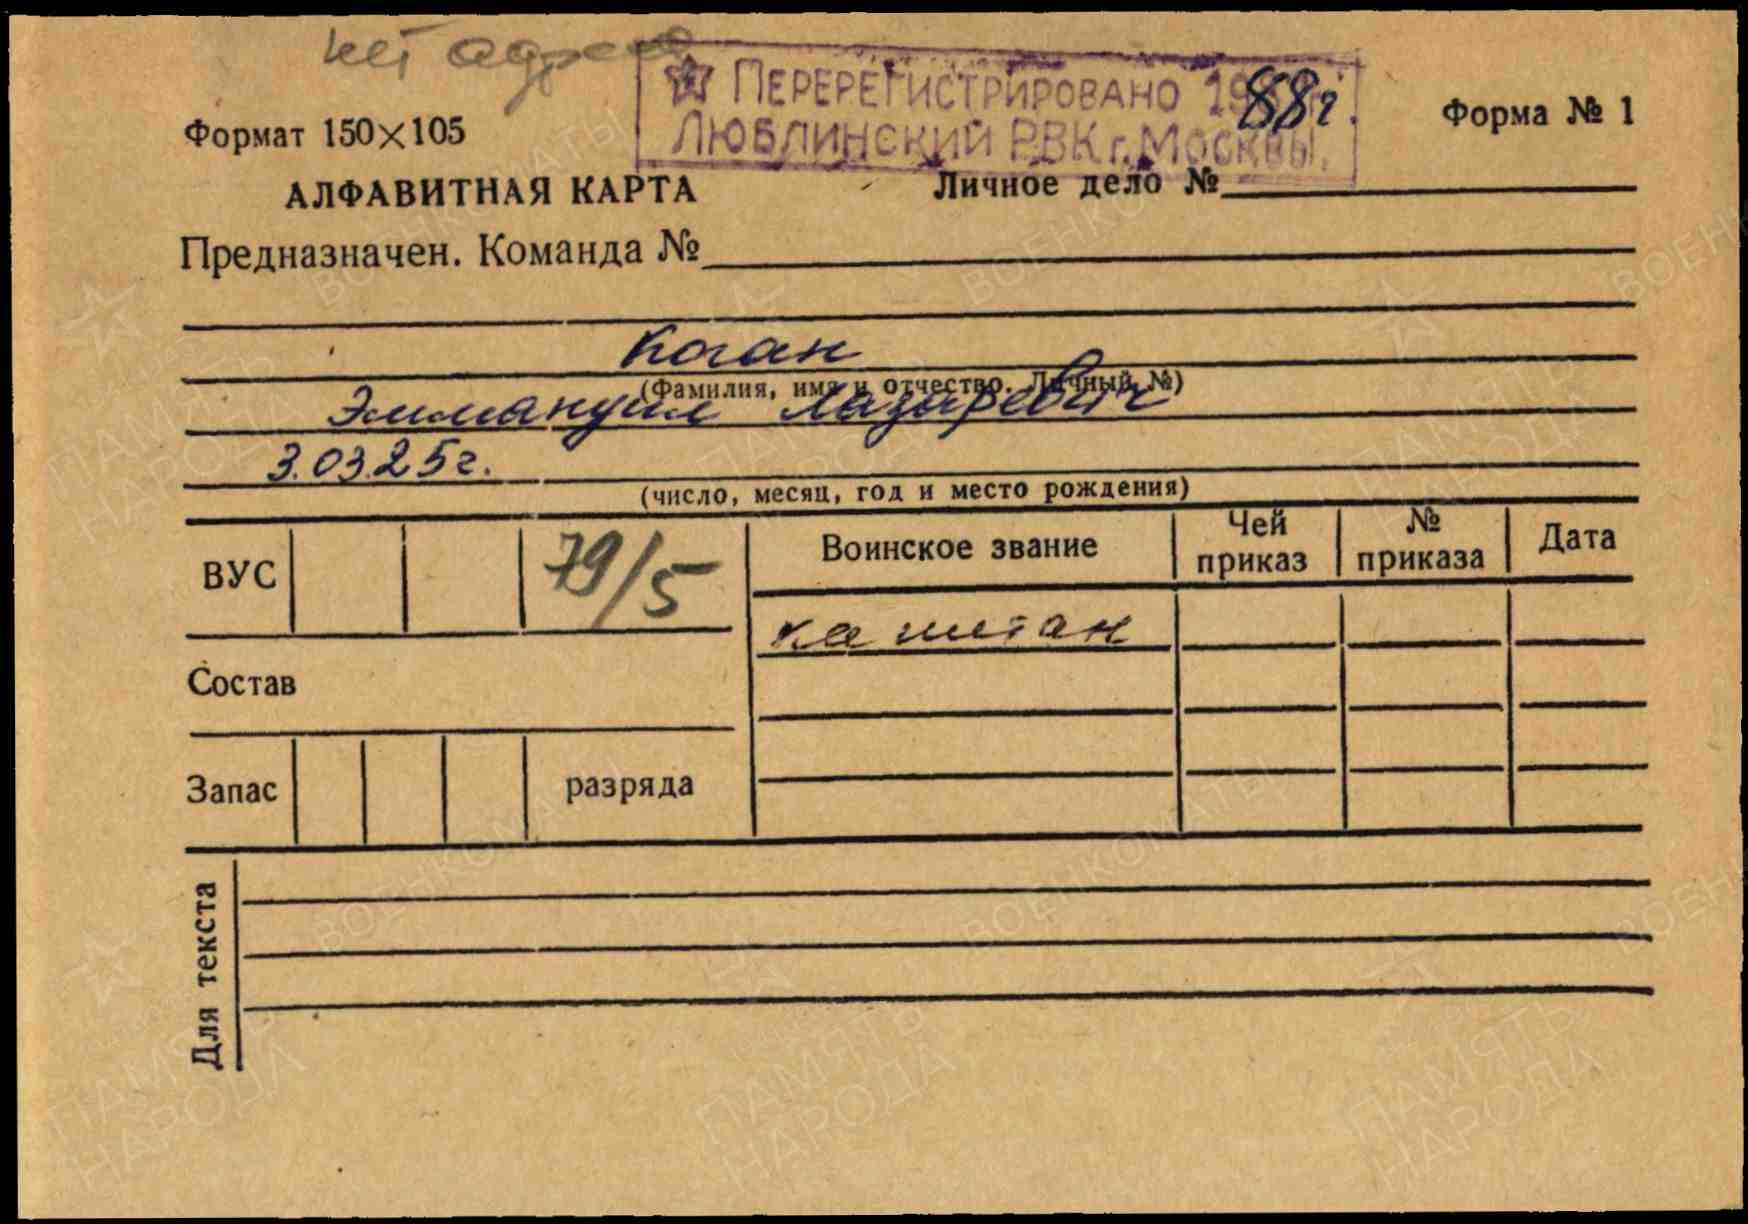 нет адреса
☆ ПЕРЕРЕГИСТРИРОВАНО 1988г.
ЛЮБЛИНСКИЙ РВК г. МОСКВЫ.
Форма № 1
Формат 150×105
АЛФАВИТНАЯ КАРТА
Личное дело №
Предназначен. Команда №
Коган
(Фамилия, имя и отчество. Личный №)
Эммануил Лазаревич
3.03.25г.
(число, месяц, год и место рождения)
ВУС 79/5
Воинское звание
Чей приказ
№ приказа
Дата
капитан
Состав
Запас
разряда
Для текста
ПАМЯТЬ НАРОДА
ВОЕНКОМАТЫ